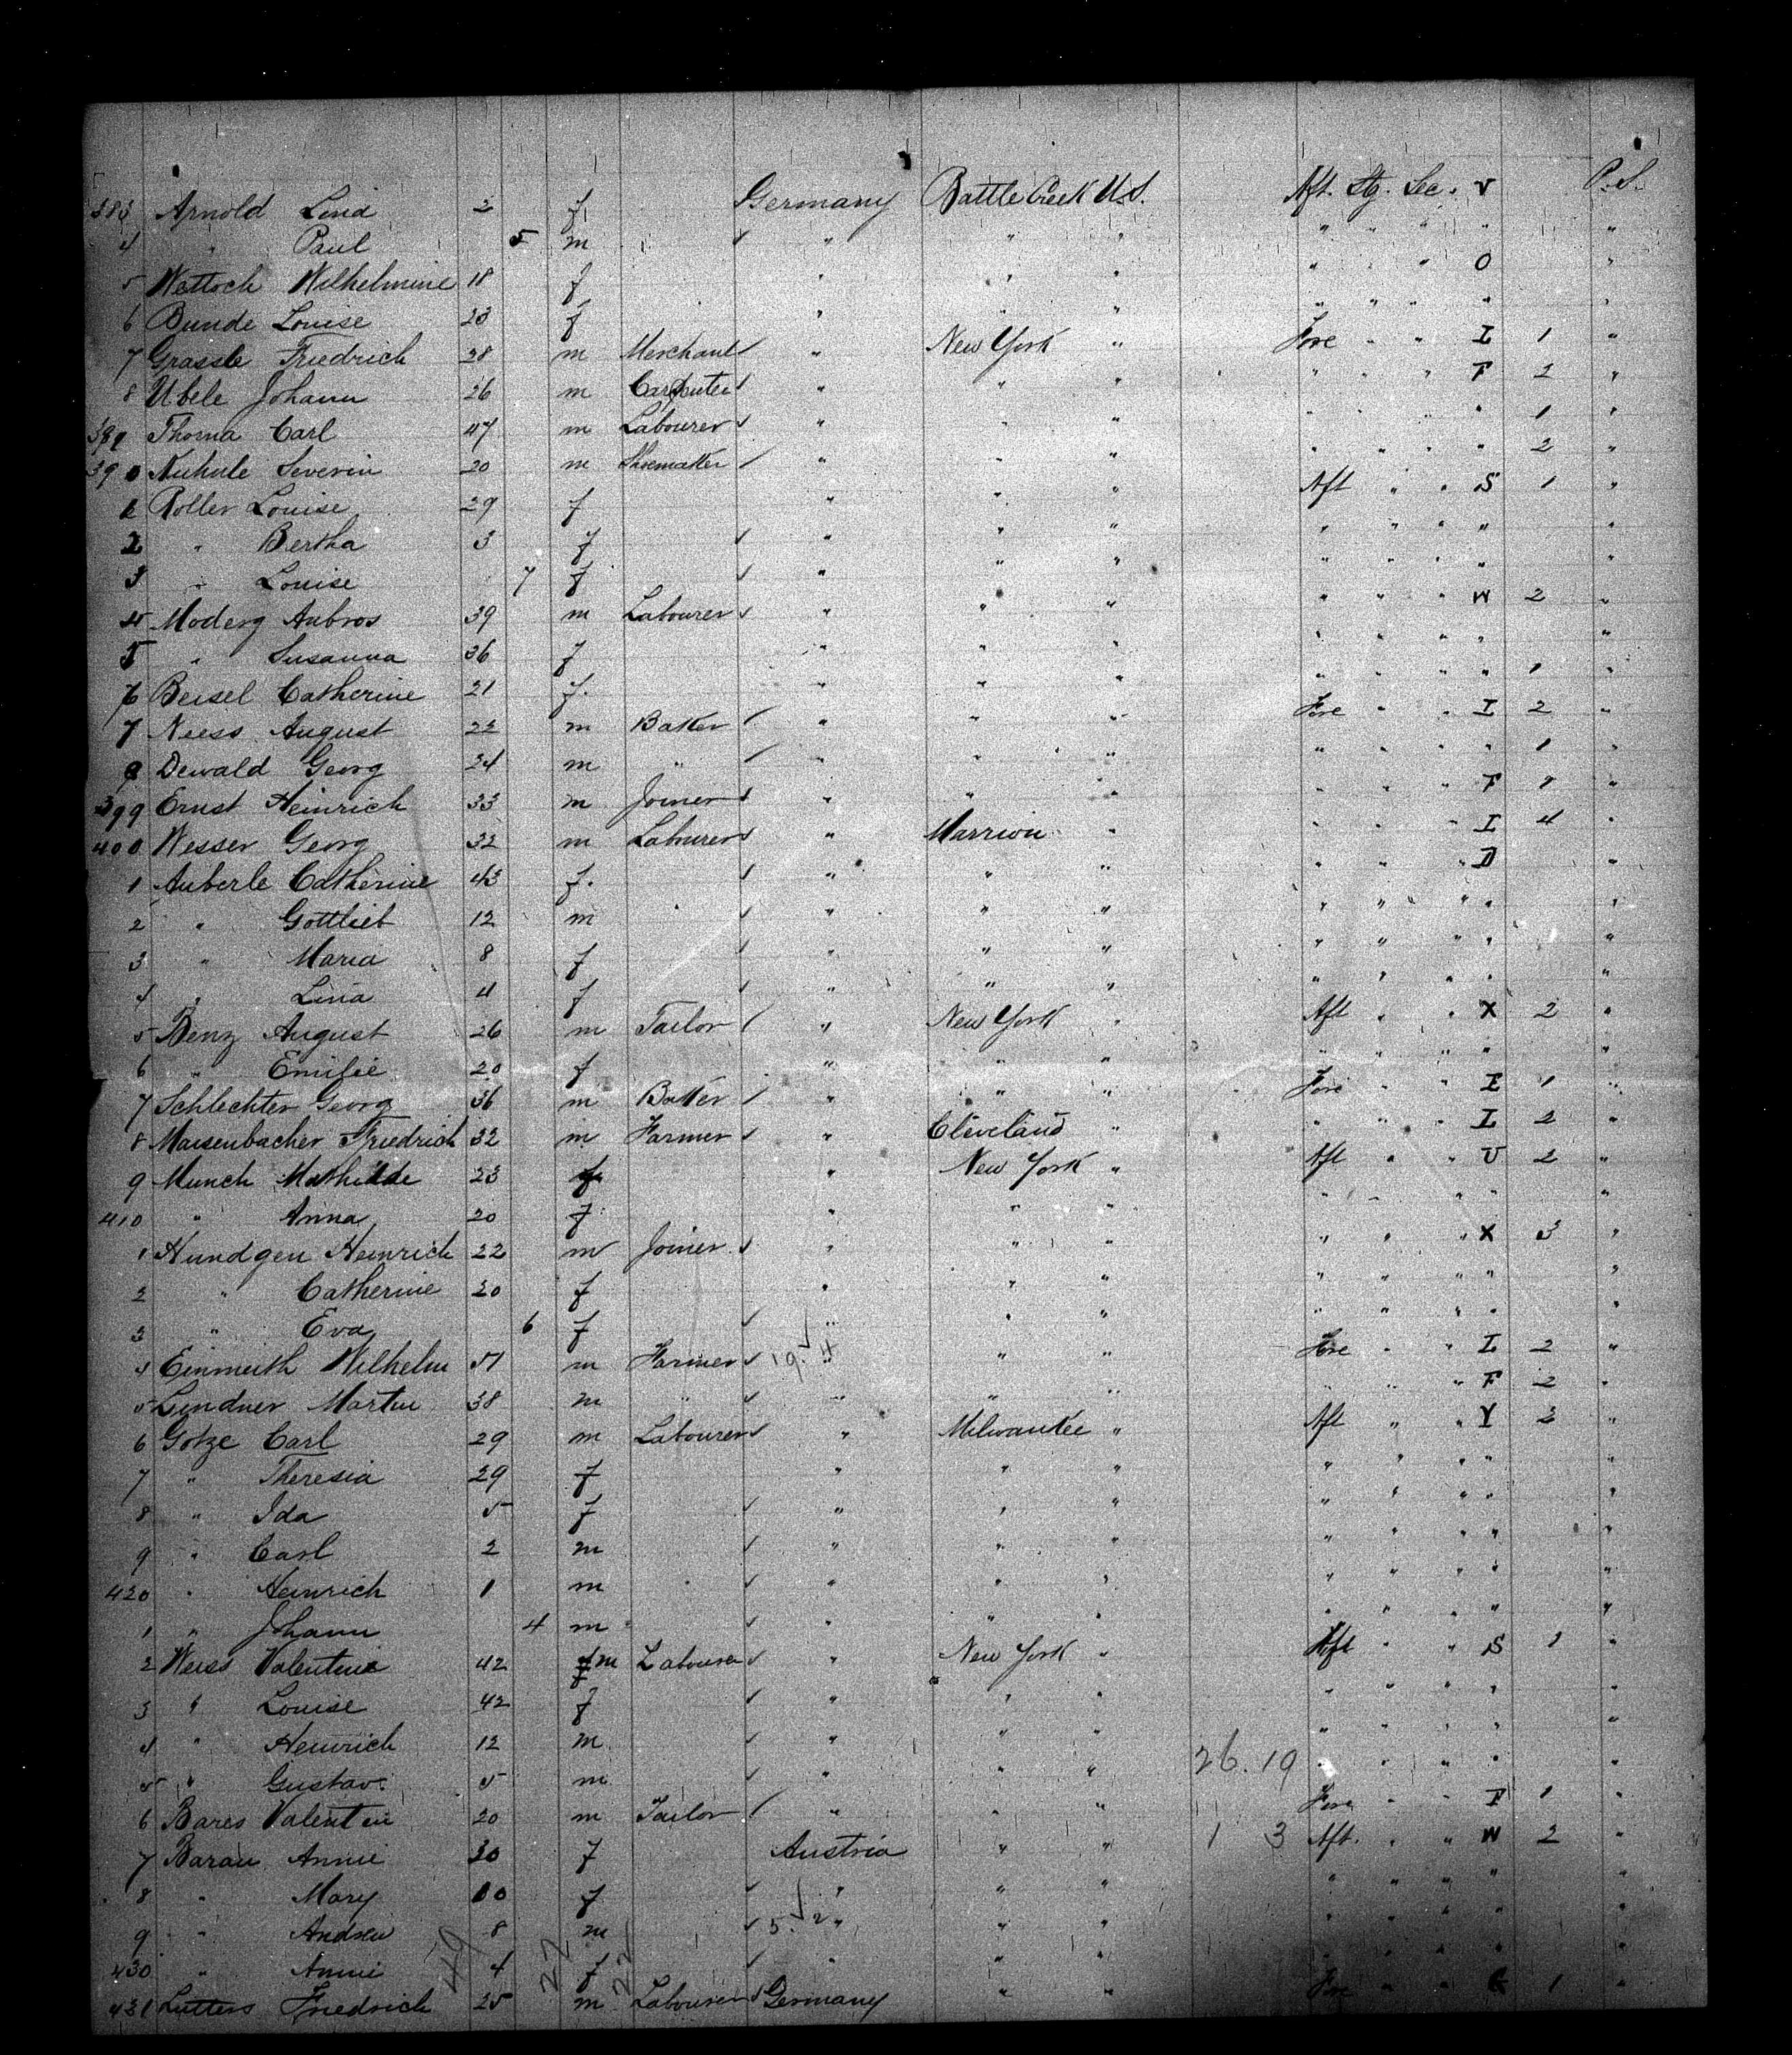 383 Arnold Lina 2 f Germany Battle Creek U.S. Aft. Stg. Sec. V P.S.
4 " Paul 5 m " " " " " " " "
5 Wottoch Wilhelmine 18 f " " " " " " O "
6 Bunde Louise 23 f " " " " " " " "
7 Grassle Friedrich 28 m Merchant " New York " Fore " " I 1 "
8 Ubele Johann 26 m Carpenter " " " " " " F 2 "
389 Thoma Carl 47 m Labourer " " " " " " " 1 "
390 Kuhnle Severin 20 m Shoemaker " " " " " " " 2 "
1 Roller Louise 29 f " " " Aft " " S 1 "
2 " Bertha 3 f " " " " " " " "
3 " Louise 7 f " " " " " " " "
4 Moderg Anbros 39 m Labourer " " " " " " W 2 "
5 " Susanna 36 f " " " " " " " "
6 Beisel Catherine 21 f. " " " " " " " 1 "
7 Neess August 22 m Baker " " " Fore " " I 2 "
8 Dewald Georg 24 m " " " " " " " " 1 "
399 Ernst Heinrich 33 m Joiner " " " " " " F 1 "
400 Wesser Georg 32 m Labourer " Marrion " " " " I 4 "
1 Auberle Catherine 43 f. " " " " " " D "
2 " Gottlieb 12 m " " " " " " " "
3 " Maria 8 f " " " " " " " "
4 " Lina 4 f " " " " " " " "
5 Benz August 26 m Tailor " New York " Aft " " X 2 "
6 " Emilie 20 f " " " " " " " "
7 Schlechter Georg 36 m Baker " " " Fore " " E 1 "
8 Maisenbacher Friedrich 32 m Farmer " Cleveland " " " " I 2 "
9 Munch Mathilde 23 f " New York " Aft " " U 2 "
410 " Anna 20 f " " " " " " " "
1 Hundgen Heinrich 22 m Joiner " " " " " " X 3 "
2 " Catherine 20 f " " " " " " " "
3 " Eva 6 f " " " " " " " "
4 Einmeith Wilhelm 51 m Farmer 19. 4 " " " Fore " " I 2 "
5 Lindner Martin 38 m " " " " " " " F 2 "
6 Gotze Carl 29 m Labourer " Milwaukee " Aft " " Y 3 "
7 " Theresia 29 f " " " " " " " "
8 " Ida 5 f " " " " " " " "
9 " Carl 2 m " " " " " " " "
420 " Heinrich 1 m " " " " " " " "
1 " Johann 4 m " " " " " " " "
2 Weiss Valentine 42 m Labourer " New York " Aft " " S 1 "
3 " Louise 42 f " " " " " " " "
4 " Heinrich 12 m " " " " " " " "
5 " Gustav. 5 m " " " 26. 19 " " " " "
6 Bares Valentin 20 m Tailor " " " Fore " " F 1 "
7 Barau Annie 30 f Austria " " 1 3 Aft. " " W 2 "
8 " Mary 10 f " " " " " " " "
9 " Andrew 8 m 5. 2 " " " " " " " "
430 " Annie 4 f " " " " " " " "
431 Lutters Friedrich 25 m Labourer Germany " " Fore " " G 1 "
49 27 22